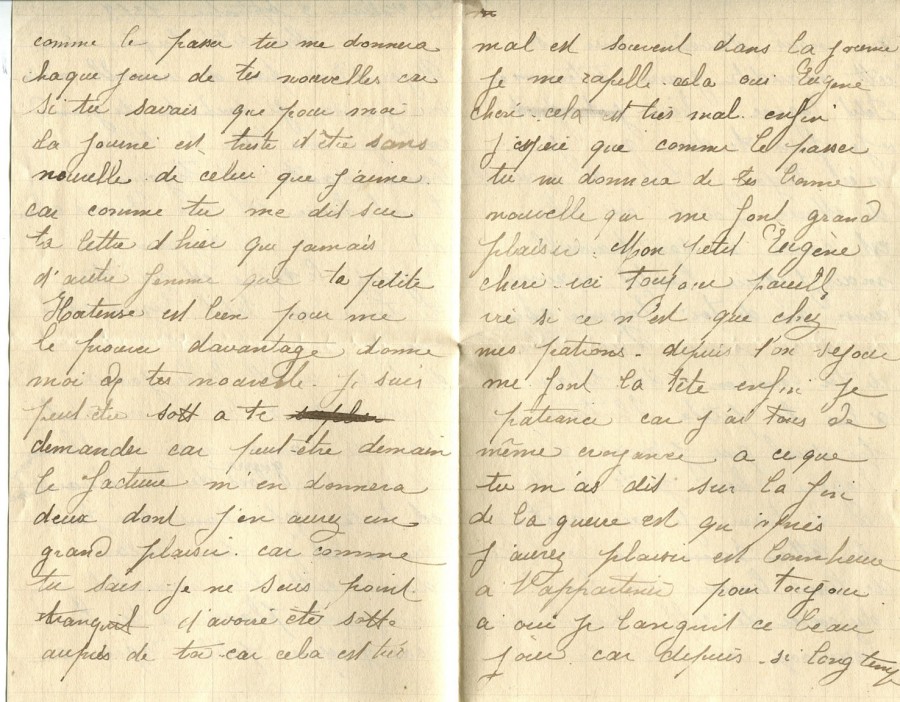 comme le passer tu me donnera
chaque jour de tes nouvelles car
si tu savais que pour moi
la journé est triste d'être sans
nouvelle de celui que j'aime.
car comme tu me dit sur
ta lettre d hier que jamais
d'autre femme que ta petite
Hortense est bien pour me
le prouver davantage donne
moi de tes nouvelle. Je suis
peut etre sott a te
demander car peut-être demain
le facteur m'en donnera
deux dont j'en aurez un
grand plaisir. car comme
tu sais. je ne suis point
tranquil d'avoir été sotte
auprès de toi car cela est très
mal est souvent dans la journé
je me rapelle cela oui Eugène
cheri. cela est très mal. enfin
j'espère que comme le passer
tu me donnera de tes bonne
nouvelle qui me font grand
plaisir. Mon petit Eugène
cheri. ici toujour pareil
si ce n'est que chez
mes patrons. depuis l'on
me font la tête enfin je
patiance car j'ai tous de
même croyance a ce que
tu m'as dit sur la fin
de la guerre est qu'après
j'aurez plaisir est bonheur
a t'appartenir pour toujour
a oui je languit ce beau
jour car depuis si longtemp